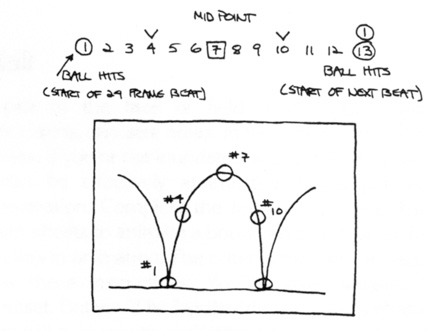 MID POINT
1
1 2 3 4 5 6 7 8 9 10 11 12 13
BALL HITS
(START OF 24 FRAME BEAT)
BALL HITS
(START OF NEXT BEAT)
#7
#4
#10
#1